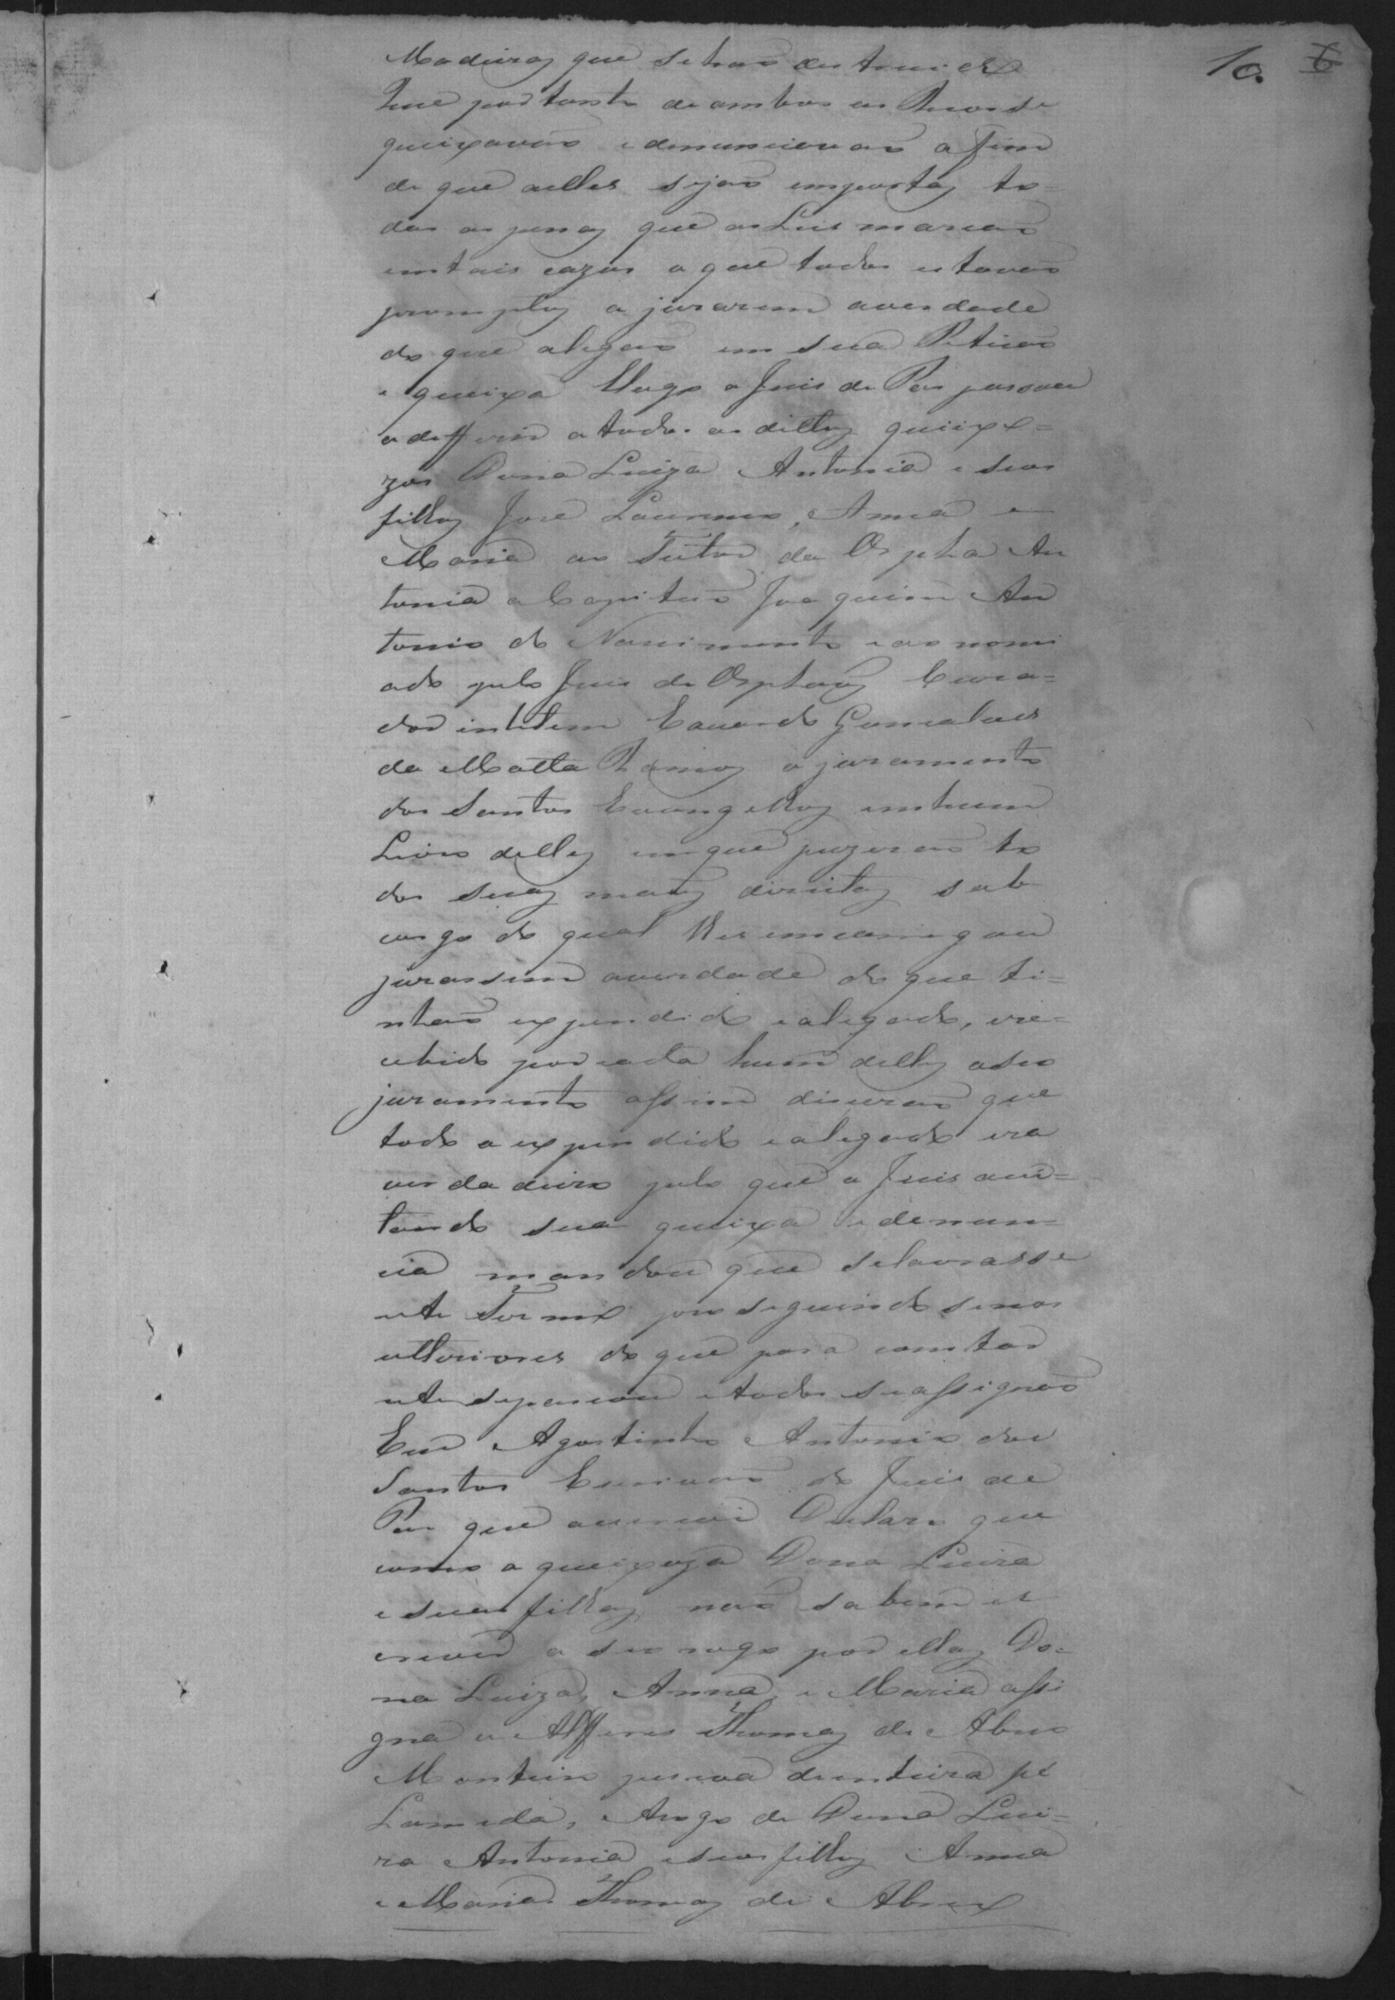 10. 6
Madeiras que se hão destruido
Que portanto de ambos os Reos se
queixavão e denunciavão a fim
de que a elles sejão impostas to=
das as penas que as Leis marcão
em tais cazos a que todos estavão
promptos a jurarem a verdade
do que alegão em sua Petição
e queixa E logo o Juis de Pas passou
a defferir a todos os dittos queixo=
zos Dona Luiza Antonia e seos
filhos José Lourenço, Anna e
Maria ao Tutor da Orphã An
tonia o Capitão Joaquim An
tonio do Nascimento e ao nome
ado pelo Juis de Orphãos Cura=
dor intilem Eduardo Gonsalves
da Motta Ramos o juramento
dos Santos Evangelhos em hum
Livro delles em que puzerão to
dos suas mãos direitas sob
cargo do qual lhes encarregou
jurassem a verdade do que ti=
nhão expendido e alegado, e re=
cebido por cada hum delles o seo
juramento assim diserão que
todo o expendido e alegado era
verdadeiro pelo que o Juis acei=
tando sua queixa e denun=
cia mandou que se lavrasse
este Termo proseguindo se nos
ulteriores do que para constar
este se passou e todos se assignão
Eu Agostinho Antonio dos
Santos Escrivão do Juis de
Pas que escrevi Declaro que
como a queixoza Dona Luiza
e suas filhas não sabem es
crever a seo rogo por ellas Do=
na Luiza, Anna, e Maria assi
gna o Alferes Thomas de Abreo
Monteiro pessoa de inteira fé
Lameda, A rogo de Dona Lui=
za Antonia e seos filhos Anna
e Maria. Thomas de Abreo